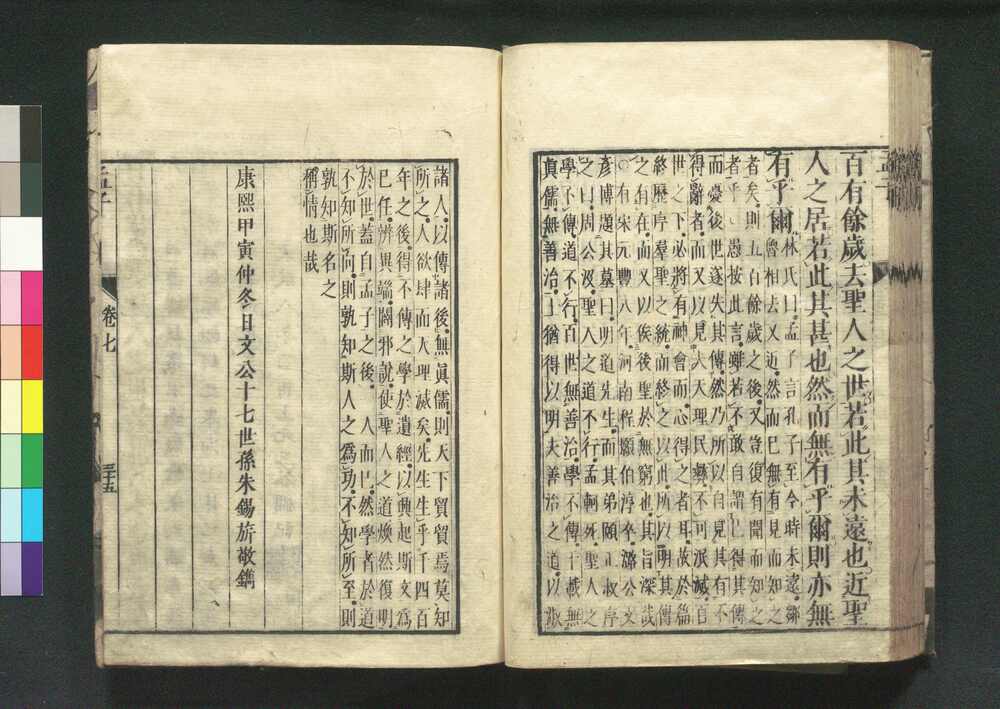 孟子
百有餘歲去聖人之世若此其未遠也近聖
人之居若此其甚也然而無有乎爾則亦無
有乎爾 林氏曰孟子言孔子至今時未遠鄒
魯相去又近然而已無有見而知之
者矣則五百餘歲之後又豈復有聞而知之
者乎○愚按此言雖若不敢自謂已得其傳
而憂後世遂失其傳然乃所以自見其有不
得辭者而又以見夫天理民彝不可泯滅百
世之下必將有神會而心得之者耳故於篇
終歷序羣聖之統而終之以此所以明其傳
之有在而又以俟後聖於無窮也其指深哉
○有宋元豐八年河南程顥伯淳卒潞公文
彥博題其墓曰明道先生而其弟頤正叔序
之曰周公沒聖人之道不行孟軻死聖人之
學不傳道不行百世無善治學不傳千載無
眞儒無善治士猶得以明夫善治之道以淑
諸人以傳諸後無眞儒則天下貿貿焉莫知
所之人欲肆而天理滅矣先生生乎千四百
年之後得不傳之學於遺經以興起斯文爲
已任辨異端闢邪說使聖人之道煥然復明
於世蓋自孟子之後一人而已然學者於道
不知所向則孰知斯人之爲功不知所至則
孰知斯名之
稱情也哉
康熙甲寅仲冬日文公十七世孫朱錫旂敬鐫
孟子
卷七
三十五